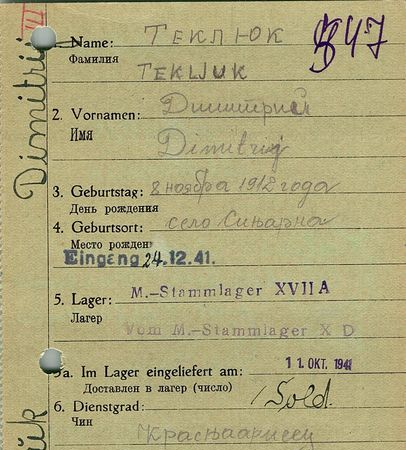 Dimitrij
III
Name: Теклюк
Фамилия
Tekljuk
8847
2. Vornamen: Дмитрий
Имя
Dimitrij
3. Geburtstag: 8 ноября 1912 года
День рождения
4. Geburtsort: село
Место рожден
Eingang 24.12.41.
5. Lager: M.-Stammlager XVII A
Лагер
Vom M.-Stammlager X D
5a. Im Lager eingeliefert am: 11. OKT. 1941
Доставлен в лагер (число)
6. Dienstgrad: Sold.
Чин